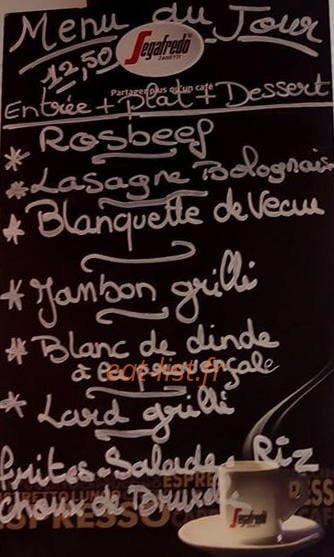 Menu du Jour
12,50
Segafredo
ZANETTI
Partagez plus qu'un café
Entrée + plat + Dessert
* Rosbeef
* Lasagne Bolognais
* Blanquette de Veau
* Jambon grillé
* Blanc de dinde
à la provençale
eat-list.fr
* Lard grillé
frites - Salade - Riz
Choux de Bruxel
ESPRESSO
Segafredo